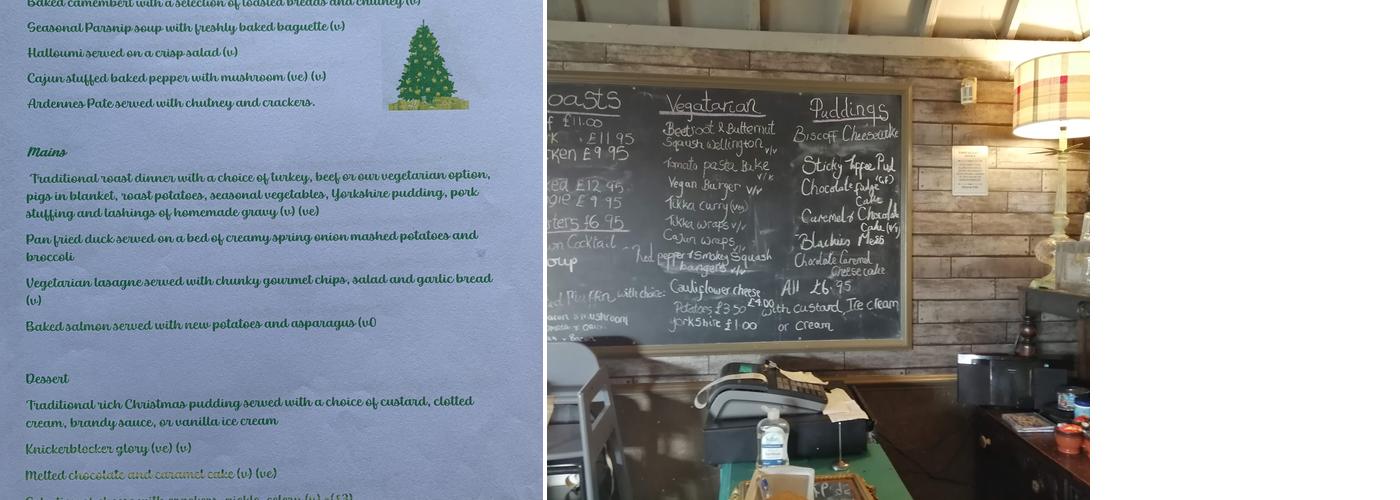 Baked camembert with a selection of toasted breads and chutney (v)
Seasonal Parsnip soup with freshly baked baguette (v)
Halloumi served on a crisp salad (v)
Cajun stuffed baked pepper with mushroom (ve) (v)
Ardennes Pate served with chutney and crackers.
Mains
Traditional roast dinner with a choice of turkey, beef or our vegetarian option,
pigs in blanket, roast potatoes, seasonal vegetables, Yorkshire pudding, pork
stuffing and lashings of homemade gravy (v) (ve)
Pan fried duck served on a bed of creamy spring onion mashed potatoes and
broccoli
Vegetarian lasagne served with chunky gourmet chips, salad and garlic bread
(v)
Baked salmon served with new potatoes and asparagus (v()
Dessert
Traditional rich Christmas pudding served with a choice of custard, clotted
cream, brandy sauce, or vanilla ice cream
Knickerblocker glory (ve) (v)
Melted chocolate and caramel cake (v) (ve)
oasts
£11.00
£11.95
ken £9.95
£12.95
gie £9.95
ters £6.95
Cocktail
oup
Muffin with choice:
Vegatarian
Beetroot & Butternut
Sqaush wellington v/v
Tomato pasta Bake
Vegan Burger v/v
Tikka curry
Tikka wraps v/v
Cajun wraps v/v
Red pepper & Smokey Squash
bangers v/v
Cauliflower cheese
£4.00
Potatoes £3.50
Yorkshire £1.00
Puddings
Biscoff Cheesecake
Sticky Toffee Pud
Chocolate fudge
Cake
Caramel & Chocolate
Cake
Blackies Mess
Chocolate Caramel
Cheesecake
All £6.95
with custard, Ice cream
or cream